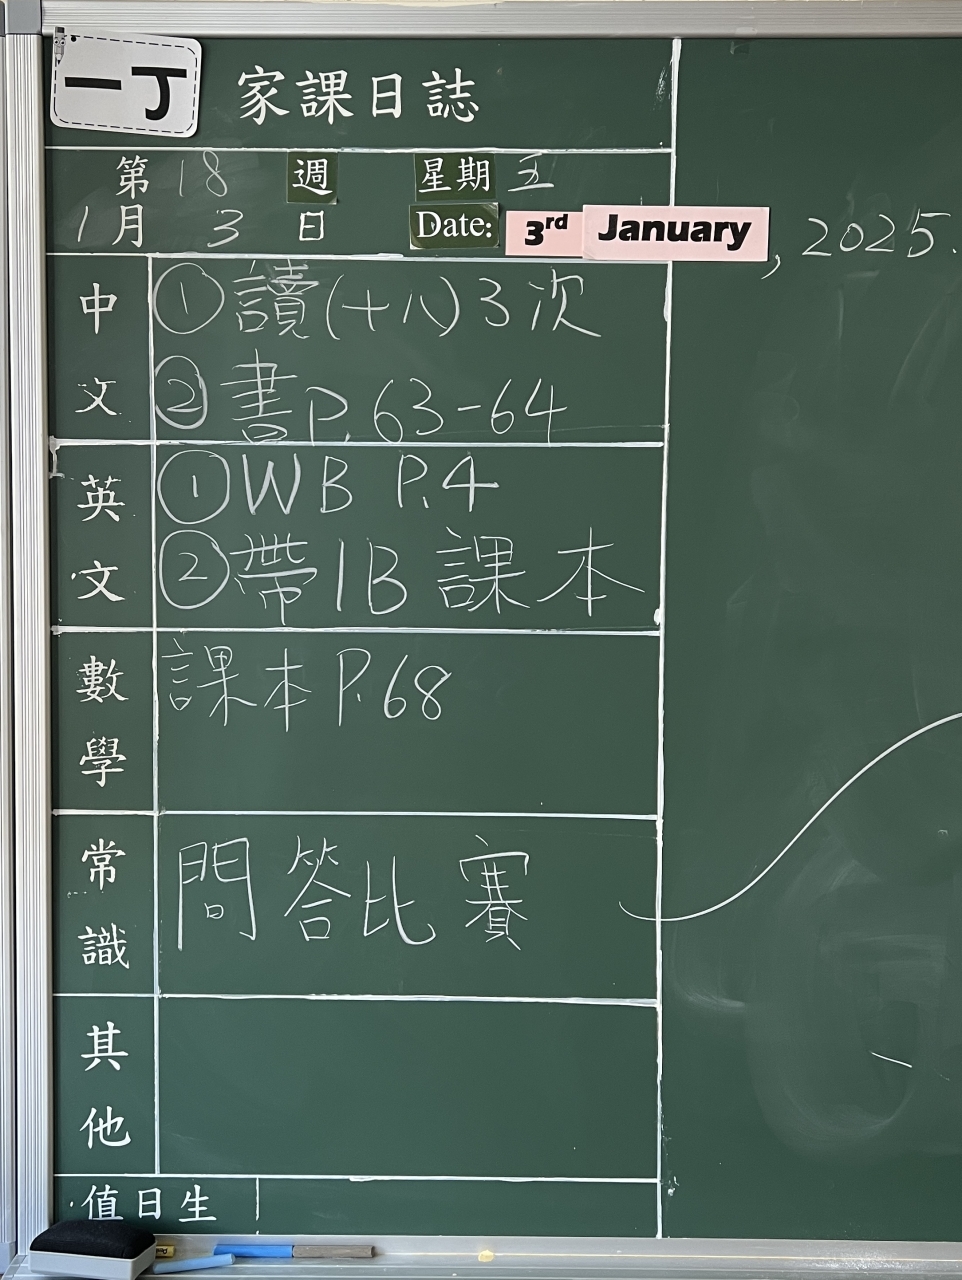 一丁 家課日誌
第18週 星期五
1月3日 Date: 3rd January, 2025.
中文
①讀(十八)3次
②書P.63-64
英文
①WB P.4
②帶1B課本
數學
課本P.68
常識
問答比賽
其他
值日生